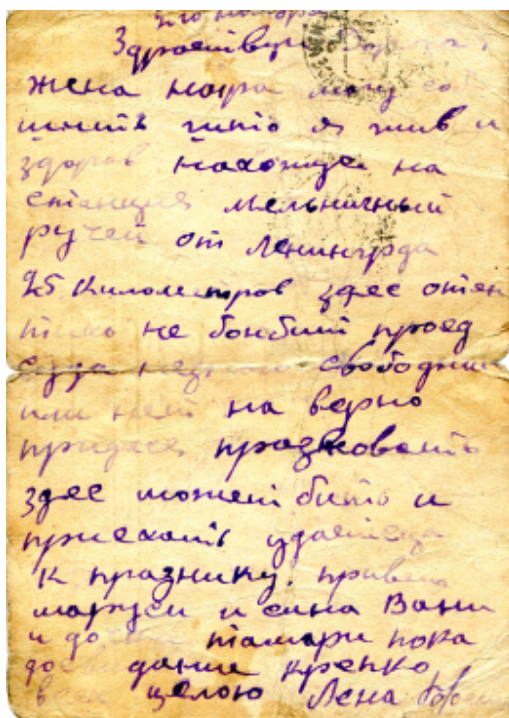 Здраствуй Дорогая
жена нюра могу соо
щить што я жив и
здоров нахожуся на
станцие мельничный
ручей от Ленинграда
25 километров здес очен
тихо не бонбит проезд
сюда свободный
или нет на верно
придется празновать
здес может бить и
приехать удастеца
к празнику. привет
маруси и сина Вани
и до тамари пока
до свидание крепко
всех целою Лена